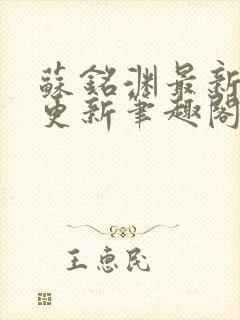 蘇銘淵最新
更新筆趣閣
王惠民